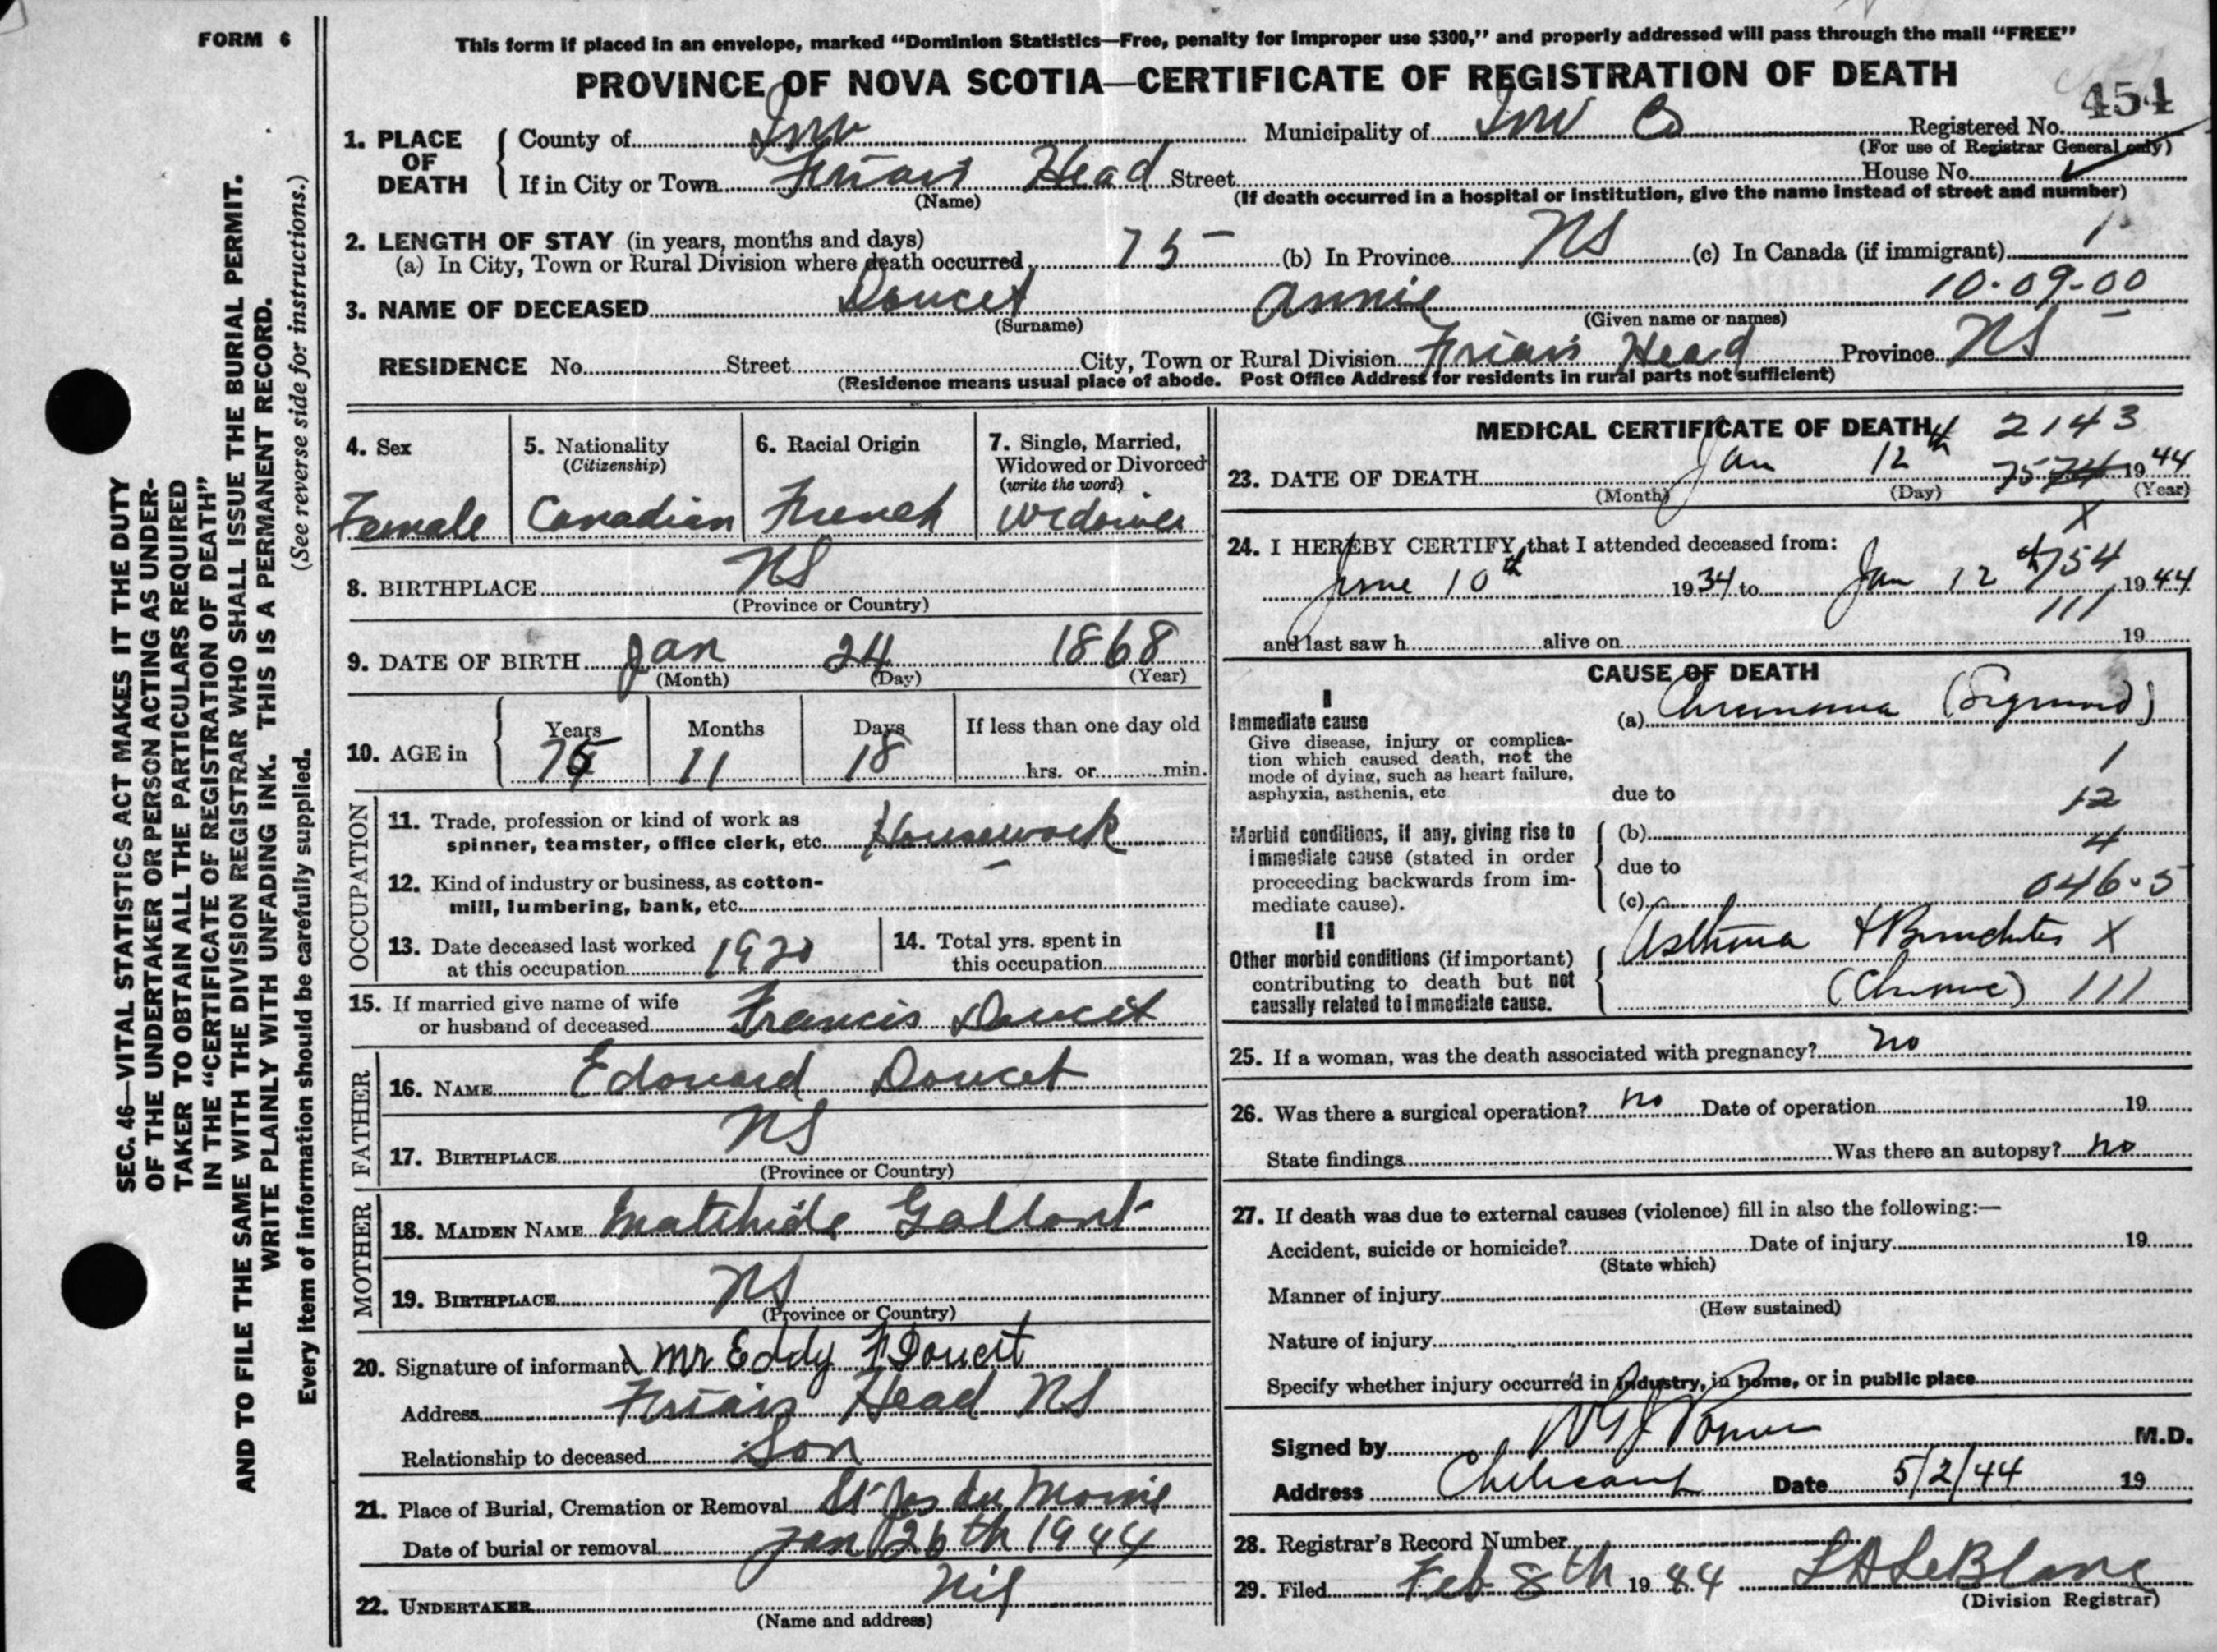 FORM 6
This form if placed in an envelope, marked "Dominion Statistics—Free, penalty for improper use $300," and properly addressed will pass through the mail "FREE"
PROVINCE OF NOVA SCOTIA—CERTIFICATE OF REGISTRATION OF DEATH
454
1. PLACE OF DEATH County of Inv Municipality of Inv Co Registered No.
(For use of Registrar General only)
If in City or Town Friars Head Street House No.
(Name) (If death occurred in a hospital or institution, give the name instead of street and number)
2. LENGTH OF STAY (in years, months and days)
(a) In City, Town or Rural Division where death occurred 75 (b) In Province NS (c) In Canada (if immigrant)
10-09-00
3. NAME OF DECEASED Doucet Annie
(Surname) (Given name or names)
RESIDENCE No. Street City, Town or Rural Division Friars Head Province NS
(Residence means usual place of abode. Post Office Address for residents in rural parts not sufficient)
4. Sex
Female
5. Nationality
(Citizenship)
Canadian
6. Racial Origin
French
7. Single, Married,
Widowed or Divorced
(write the word)
8. BIRTHPLACE NS
(Province or Country)
9. DATE OF BIRTH Jan 24 1868
(Month) (Day) (Year)
10. AGE in Years Months Days If less than one day old
75 11 18 hrs. or min.
OCCUPATION
11. Trade, profession or kind of work as
spinner, teamster, office clerk, etc. Housework
12. Kind of industry or business, as cotton-
mill, lumbering, bank, etc. —
13. Date deceased last worked
at this occupation
14. Total yrs. spent in
this occupation
15. If married give name of wife
or husband of deceased Francis Doucet
FATHER
16. NAME Edouard Doucet
17. BIRTHPLACE NS
(Province or Country)
MOTHER
18. MAIDEN NAME Mathide Gallant
19. BIRTHPLACE NS
(Province or Country)
20. Signature of informant Mr Eddy F Doucet
Address Friars Head NS
Relationship to deceased Son
21. Place of Burial, Cremation or Removal St Jos du Moine
Date of burial or removal Jan 26th 1944
22. UNDERTAKER Nil
(Name and address)
MEDICAL CERTIFICATE OF DEATH 2143
23. DATE OF DEATH Jan 12th 75 74 1944
(Month) (Day) (Year)
X
24. I HEREBY CERTIFY, that I attended deceased from:
754
June 10th 1934 to Jan 12th 1944
111
and last saw h alive on 19
CAUSE OF DEATH
I
Immediate cause
Give disease, injury or complica-
tion which caused death, not the
mode of dying, such as heart failure,
asphyxia, asthenia, etc
(a)
due to
1
12
Morbid conditions, if any, giving rise to
immediate cause (stated in order
proceeding backwards from im-
mediate cause).
(b)
4
due to
(c) 046-5
II
Other morbid conditions (if important)
contributing to death but not
causally related to immediate cause.
Asthma & Bronchitis X
(Chronic) 111
25. If a woman, was the death associated with pregnancy? no
26. Was there a surgical operation? no Date of operation 19
State findings Was there an autopsy? no
27. If death was due to external causes (violence) fill in also the following:—
Accident, suicide or homicide? Date of injury 19
(State which)
Manner of injury
(How sustained)
Nature of injury
Specify whether injury occurred in industry, in home, or in public place
Signed by M.D.
Address Cheticamp Date 5/2/44 19
28. Registrar's Record Number
29. Filed Feb 8th 1944 L A LeBlanc
(Division Registrar)
SEC. 46—VITAL STATISTICS ACT MAKES IT THE DUTY
OF THE UNDERTAKER OR PERSON ACTING AS UNDER-
TAKER TO OBTAIN ALL THE PARTICULARS REQUIRED
IN THE "CERTIFICATE OF REGISTRATION OF DEATH"
AND TO FILE THE SAME WITH THE DIVISION REGISTRAR WHO SHALL ISSUE THE BURIAL PERMIT.
WRITE PLAINLY WITH UNFADING INK. THIS IS A PERMANENT RECORD.
(See reverse side for instructions.)
Every item of information should be carefully supplied.